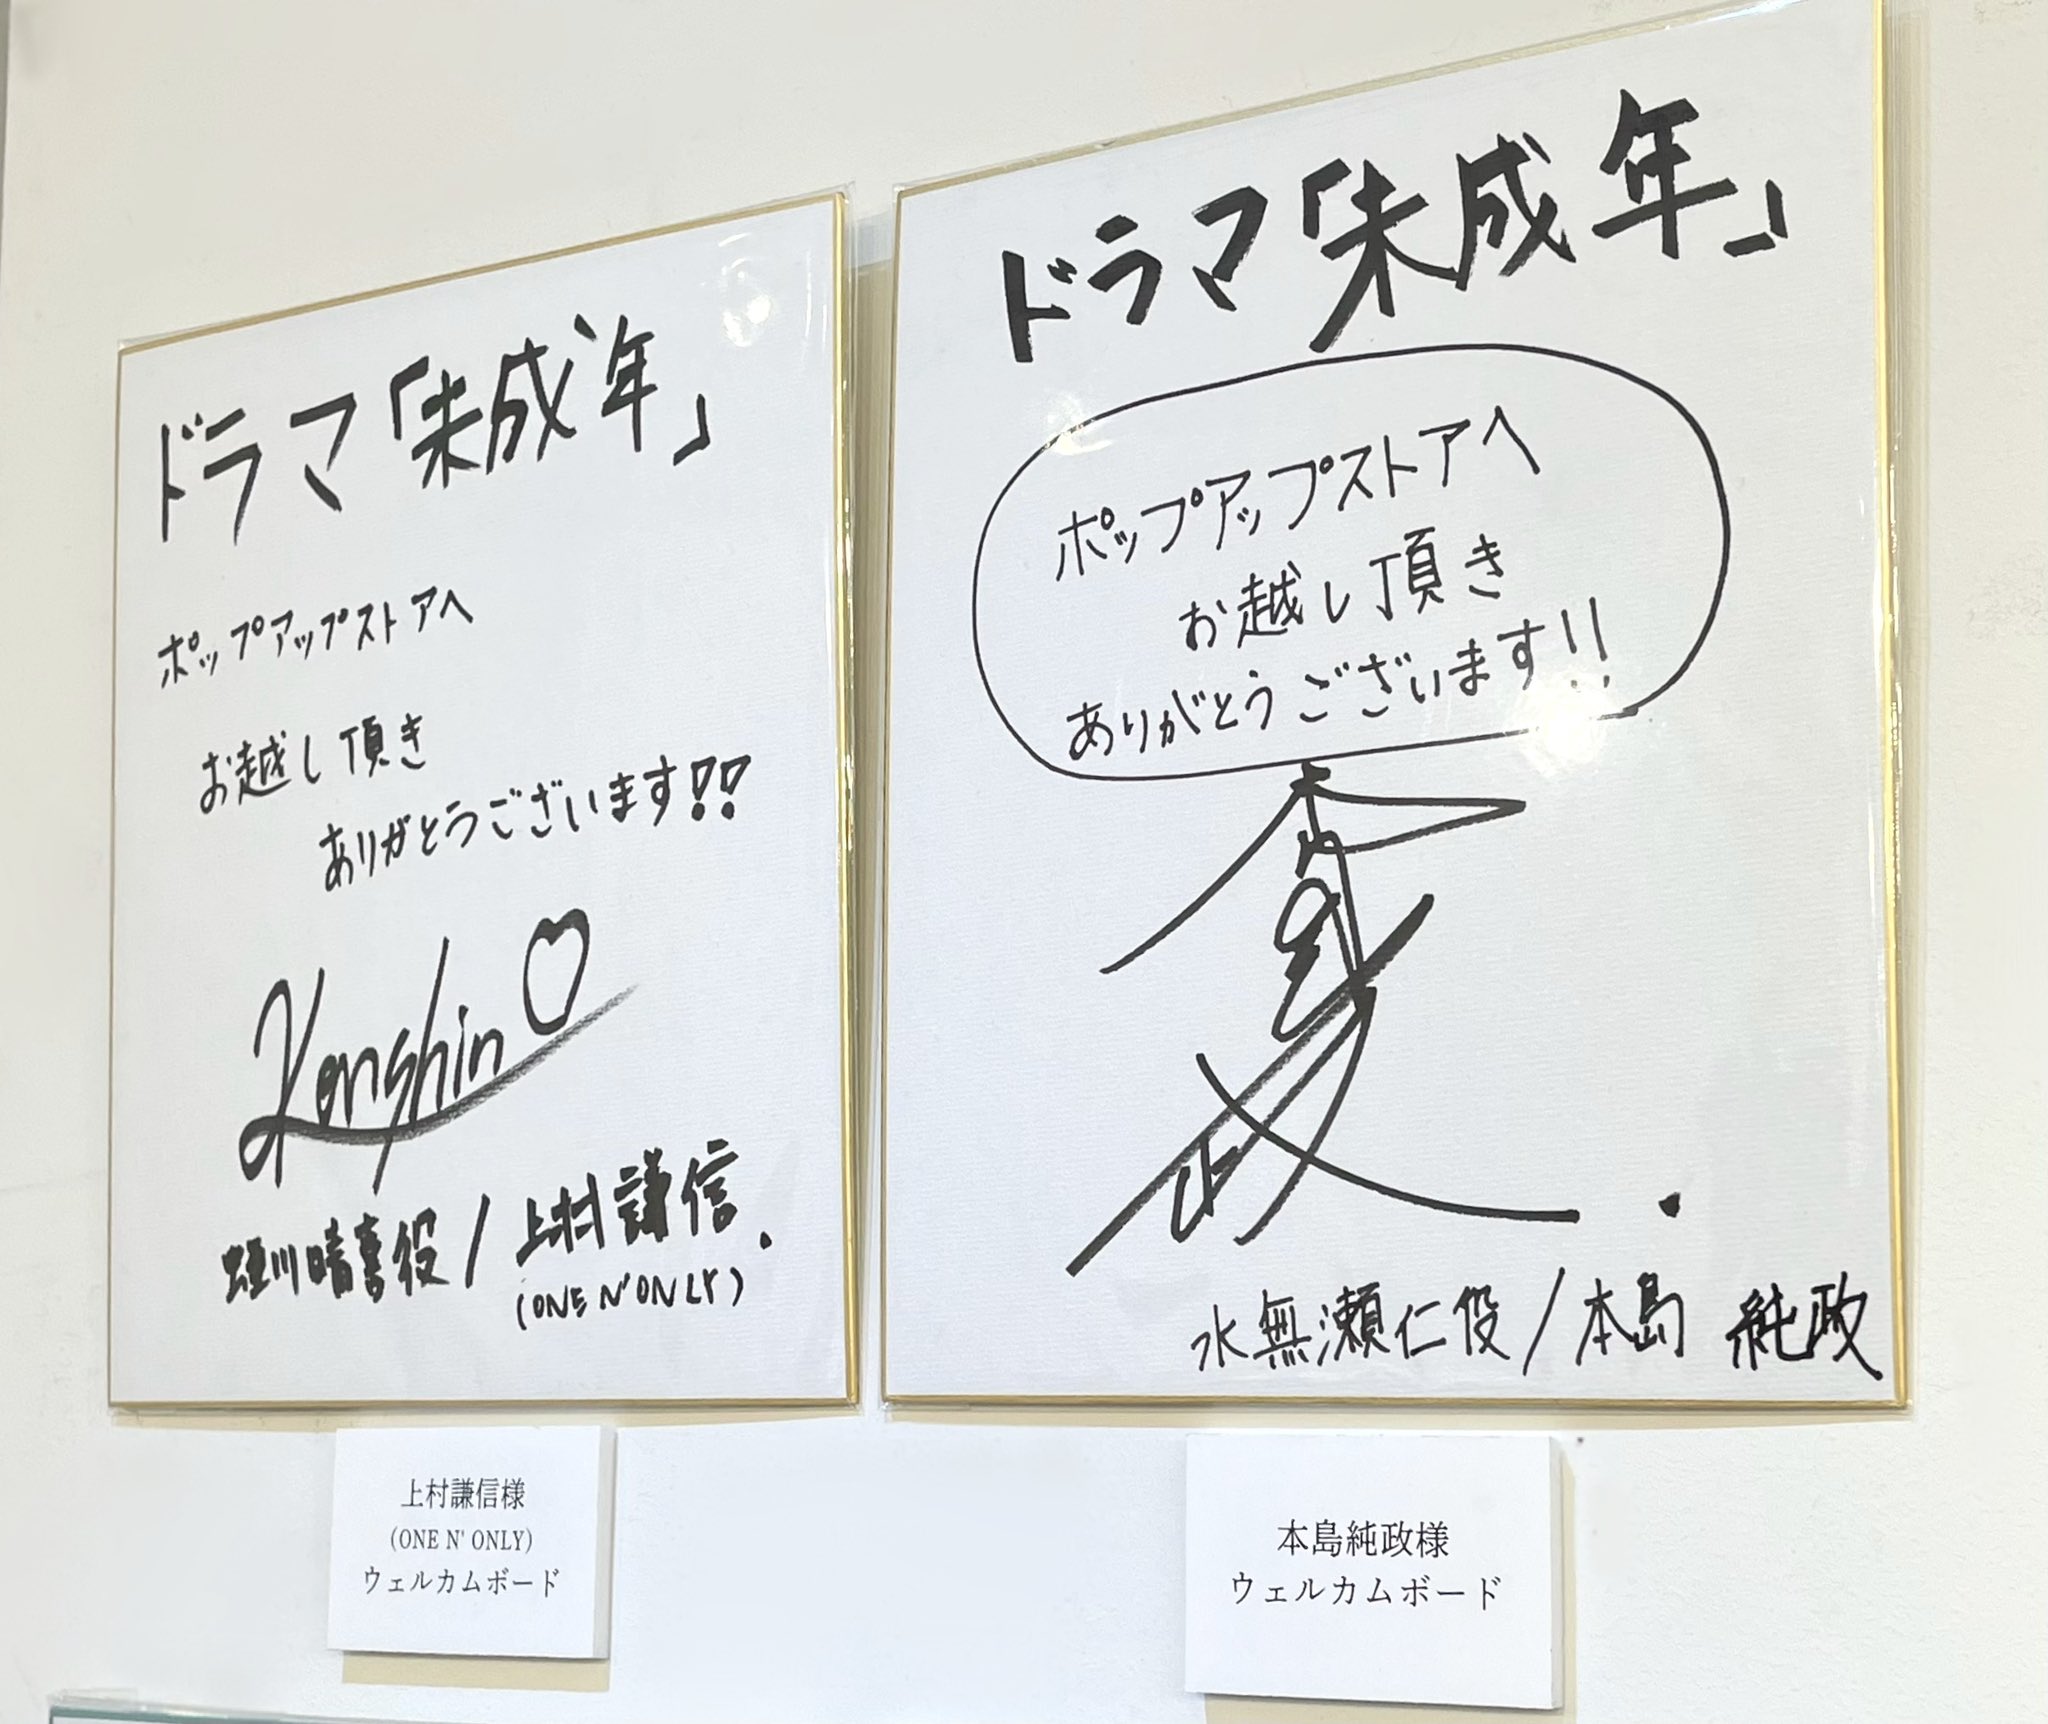 ドラマ「未成年」
ポップアップストアへ
お越し頂き
ありがとうございます!!
Kenshin♡
蛭川晴喜役/上村謙信.
(ONE N' ONLY)
上村謙信様
(ONE N' ONLY)
ウェルカムボード
ドラマ「未成年」
ポップアップストアへ
お越し頂き
ありがとうございます!!
水無瀬仁役/本島 純政
本島純政様
ウェルカムボード